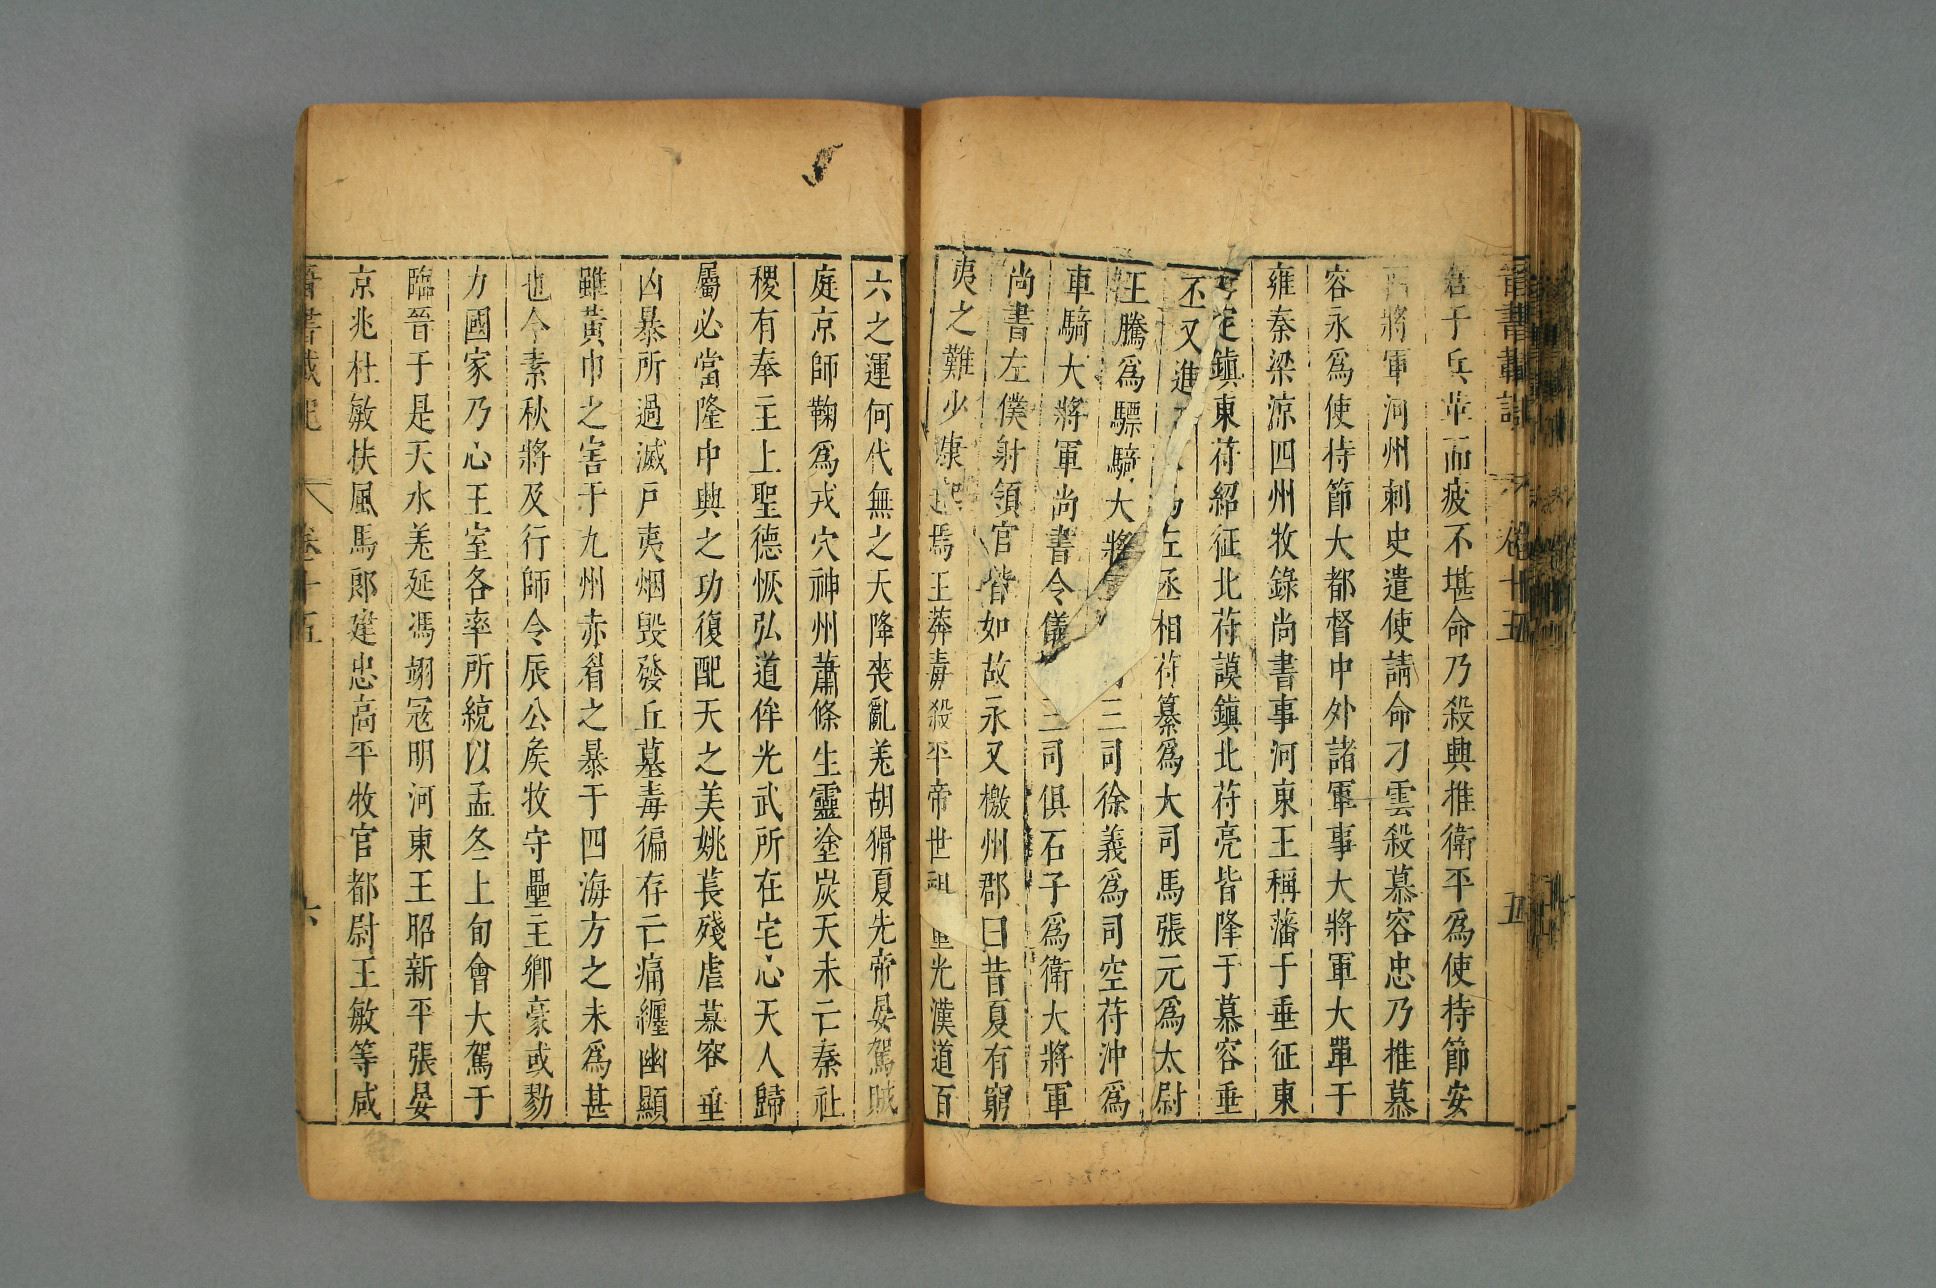 晉書載記 卷十五 五
君于兵革而疲不堪命乃殺興推衛平爲使持節安
西將軍河州刺史遣使請命刁雲殺慕容忠乃推慕
容永爲使持節大都督中外諸軍事大將軍大單于
雍秦梁涼四州牧錄尚書事河東王稱藩于垂征東
苻定鎮東苻紹征北苻謨鎮北苻亮皆降于慕容垂
丕又進 左丞相苻纂爲大司馬張元爲太尉
王騰爲驃騎大將軍 三司徐義爲司空苻沖爲
車騎大將軍尚書令儀 三司俱石子爲衛大將軍
尚書左僕射領官皆如故永又檄州郡曰昔夏有窮
夷之難少康起焉王莽毒殺平帝世祖重光漢道百
六之運何代無之天降喪亂羌胡猾夏先帝晏駕賊
庭京師鞠爲戎穴神州蕭條生靈塗炭天未亡秦社
稷有奉主上聖德恢弘道侔光武所在宅心天人歸
屬必當隆中興之功復配天之美姚萇殘虐慕容垂
凶暴所過滅戸夷烟毀發丘墓毒徧存亡痛纏幽顯
雖黃巾之害于九州赤眉之暴于四海方之未爲甚
也今素秋將及行師令辰公矦牧守壘主鄉豪或勠
力國家乃心王室各率所統以孟冬上旬會大駕于
臨晉于是天水羌延馮翊寇明河東王昭新平張晏
京兆杜敏扶風馬郞建忠高平牧官都尉王敏等咸
晉書載記 卷十五 六